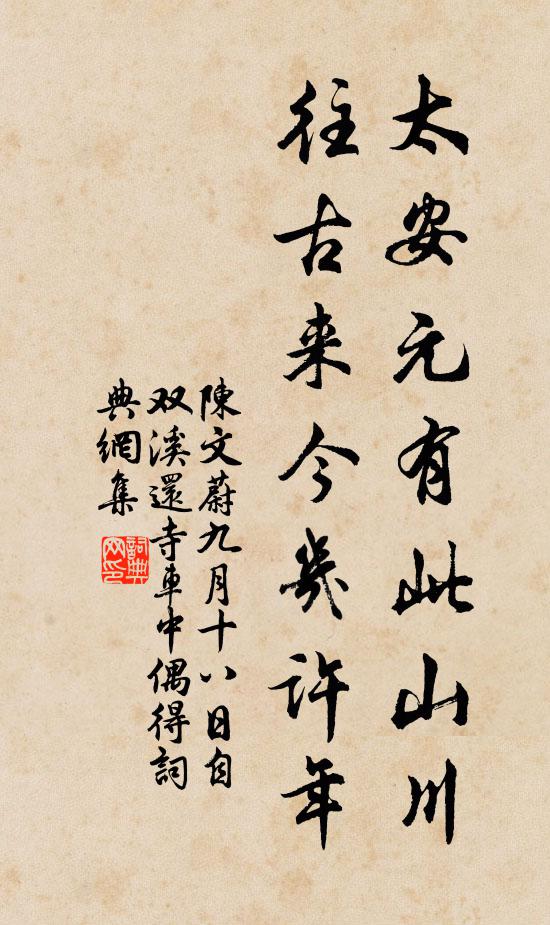 太安元有此山川
往古来今幾許年
陳文蔚九月十八日自
双溪還寺車中偶得詞
典網集
詞典網印